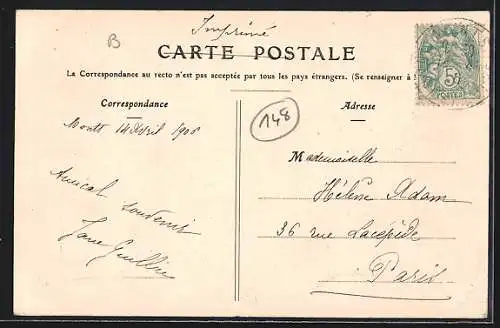 Imprimé
B
CARTE POSTALE
La Correspondance au recto n'est pas acceptée par tous les pays étrangers. (Se renseigner à
Correspondance
Adresse
148
Monts 14 Avril 1908
Mademoiselle
Amical souvenir
Hélène Adam
Jane
36 rue Lacépède
Paris
5c
POSTES